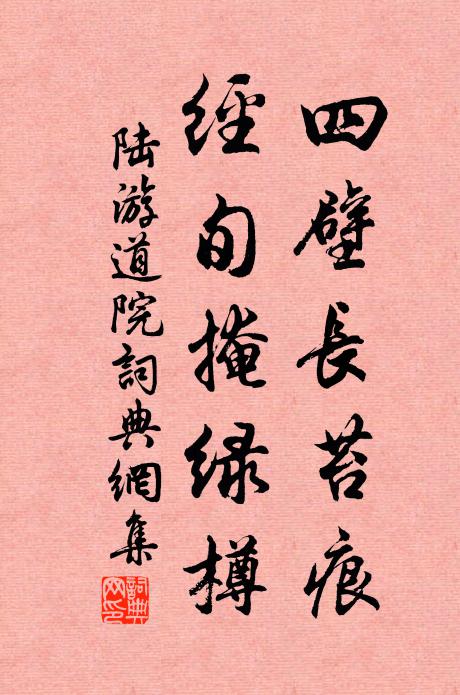 四壁長苔痕
經旬掩綠樽
陆游道院詞典網集
詞典網印